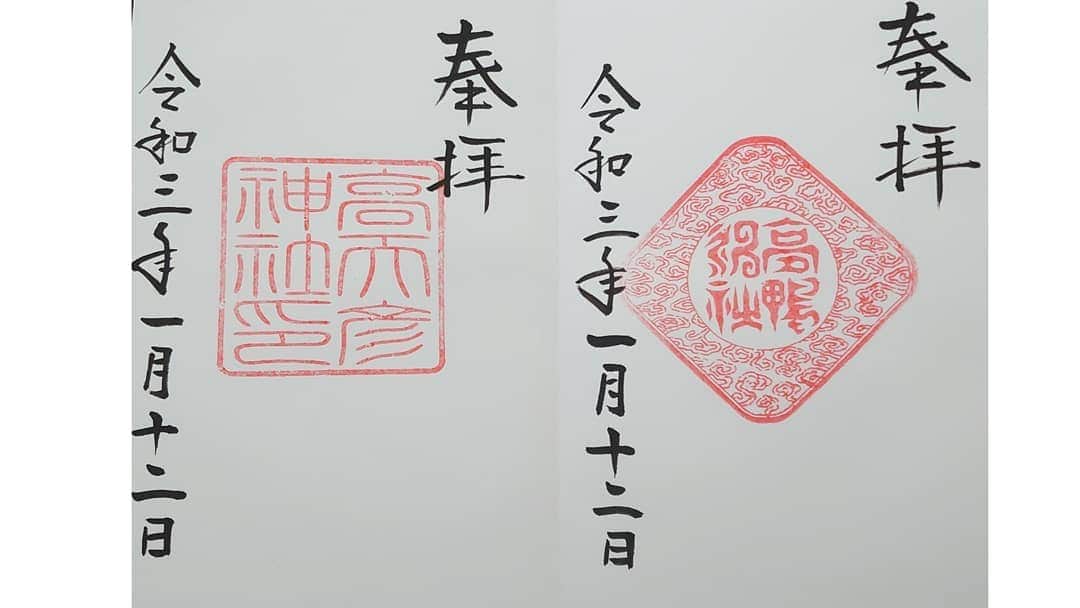 奉拝
高天彦
神社印
令和三年一月十二日
奉拝
高鴨
神社
令和三年一月十二日